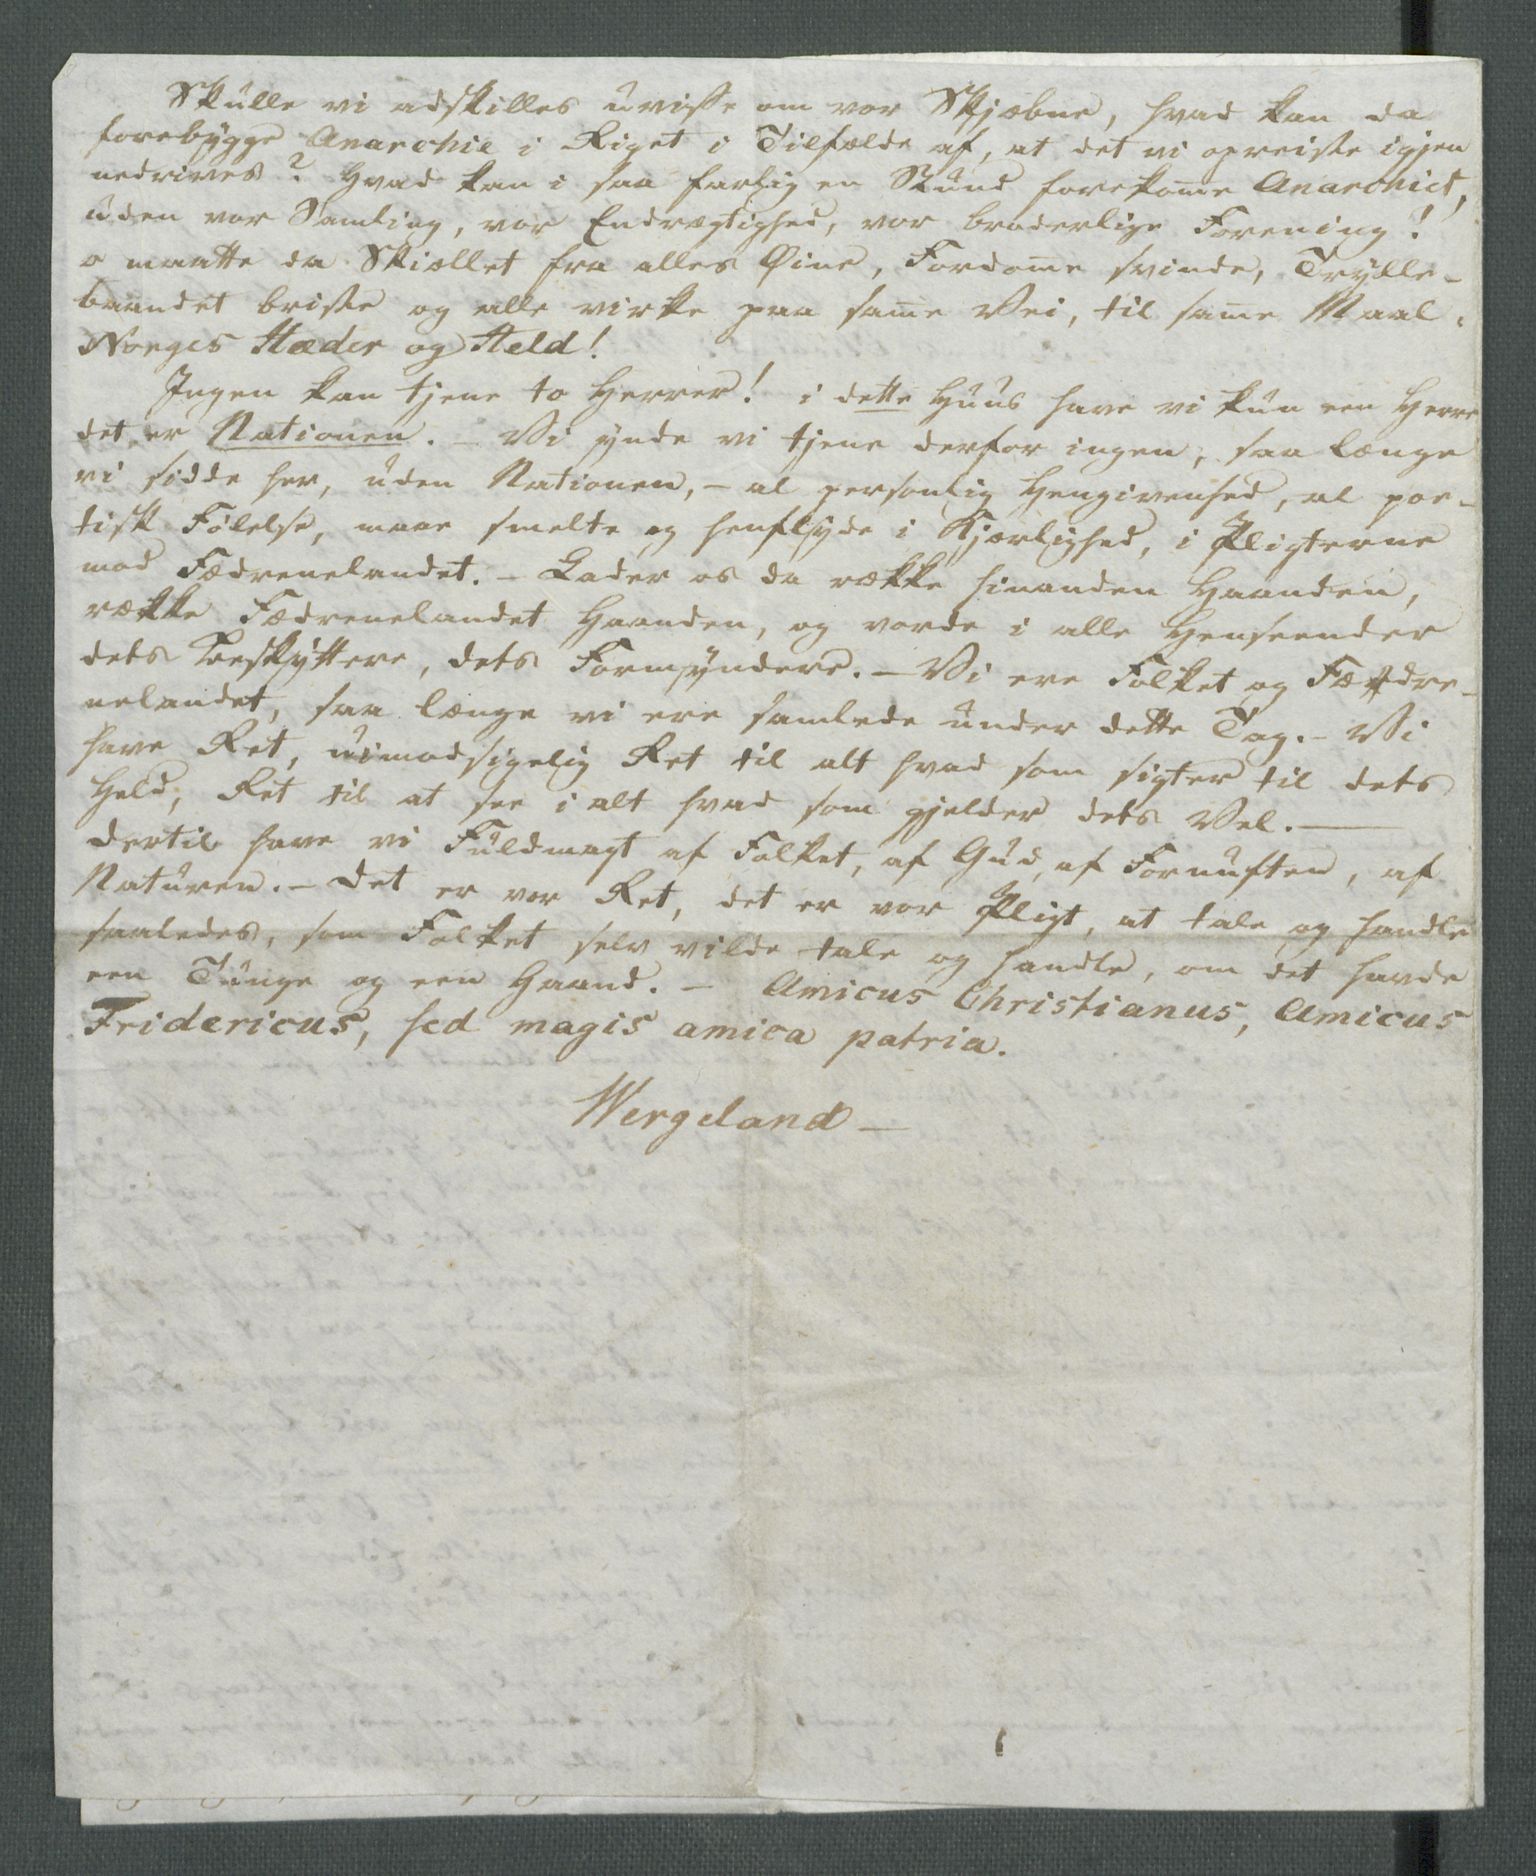 Skulle vi adskilles uvisse om vor Skjæbne, hvad kan da
forebygge Anarchie i Riget i Tilfælde af, at det vi opreiste igjen
nedrives? Hvad kan i saa farlig en Stund forekom̄e Anarchiet,
uden vor Samling, vor Endrægtighed, vor broderlige Forening!
o maatte da Skiællet fra alles Øine, Fordom̄e svinde, Trylle-
baandet briste og alle virke paa sam̄e Vei, til sam̄e Maal,
Norges Hæder og Held!
Ingen kan tjene to Herrer! i dette Huus have vi kun een Herre
det er Nationen. – Vi ynde vi tjene derfor ingen, saa længe
vi sidde her, uden Nationen, – al personlig Hengivenhed, al poe-
tisk Følelse, maae smelte og henflyde i Kjærlighed, i Pligterne
mod Fædrenelandet. – Lader os da række hinanden Haanden,
række Fædrenelandet Haanden, og vorde i alle Henseender
dets Beskyttere, dets Formyndere. – Vi ere Folket og Fædre-
nelandet, saa længe vi ere samlede under dette Tag. – Vi
have Ret, uimodsigelig Ret til alt hvad som sigter til dets
Held, Ret til at see i alt hvad som gjelder dets Vel. –
Dertil have vi Fuldmagt af Folket, af Gud, af Fornuften, af
Naturen. – Det er vor Ret, det er vor Pligt, at tale og handle
saaledes, som Folket selv vilde tale og handle, om det havde
een Tunge og een Haand. – Amicus Christianus, Amicus
Fridericus, sed magis amica patria.
Wergeland –